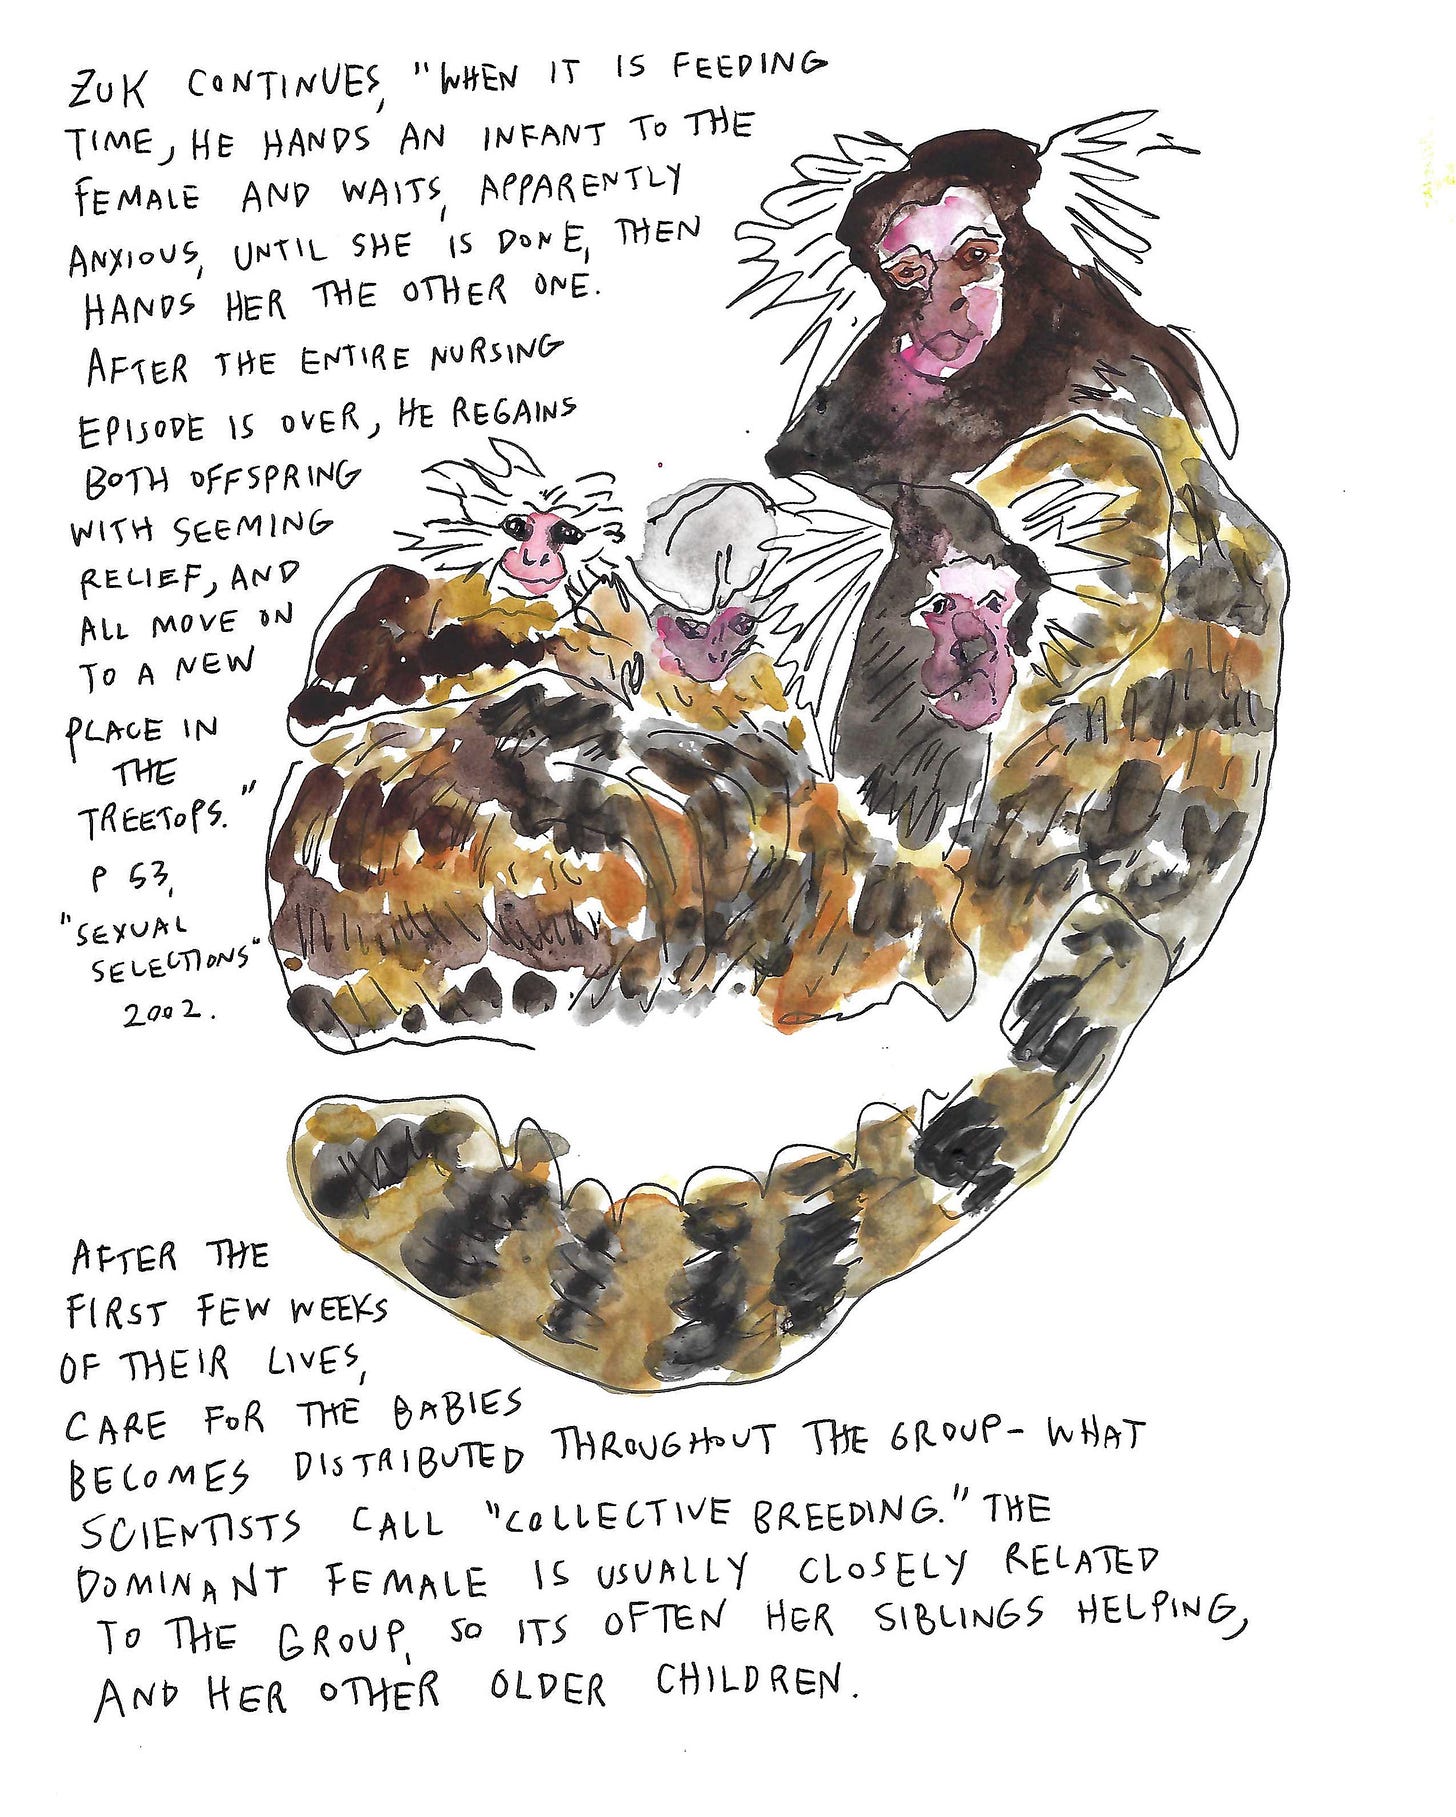 ZUK CONTINUES, "WHEN IT IS FEEDING
TIME, HE HANDS AN INFANT TO THE
FEMALE AND WAITS, APPARENTLY
ANXIOUS, UNTIL SHE IS DONE, THEN
HANDS HER THE OTHER ONE.
AFTER THE ENTIRE NURSING
EPISODE IS OVER, HE REGAINS
BOTH OFFSPRING
WITH SEEMING
RELIEF, AND
ALL MOVE ON
TO A NEW
PLACE IN
THE
TREETOPS."
P 53,
"SEXUAL
SELECTIONS"
2002.
AFTER THE
FIRST FEW WEEKS
OF THEIR LIVES,
CARE FOR THE BABIES
BECOMES DISTRIBUTED THROUGHOUT THE GROUP- WHAT
SCIENTISTS CALL "COLLECTIVE BREEDING." THE
DOMINANT FEMALE IS USUALLY CLOSELY RELATED
TO THE GROUP, SO ITS OFTEN HER SIBLINGS HELPING,
AND HER OTHER OLDER CHILDREN.